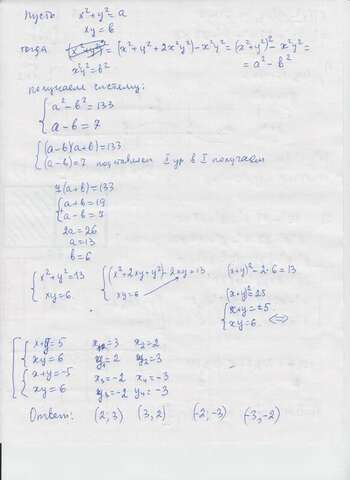 Пусть x²+y²=a
xy=b
тогда (x²+y²+2x²y²)-x²y²=(x²+y²)²-x²y²=
x²y²=b² =a²-b²
получаем систему:
{a²-b²=133
a-b=7
{(a-b)(a+b)=133
(a-b)=7 подставляем II ур в I получаем
7(a+b)=133
{a+b=19
a-b=7
2a=26
a=13
b=6
{x²+y²=13 {(x²+2xy+y²)-2xy=13 (x+y)²-2·6=13
xy=6 xy=6 {(x+y)²=25
{x+y=±5
xy=6 ⇔
{x+y=5 x₁=3 x₂=2
xy=6 y₁=2 y₂=3
{x+y=-5 x₃=-2 x₄=-3
xy=6 y₃=-2 y₄=-3
Ответ: (2;3) (3,2) (-2;-3) (-3,-2)